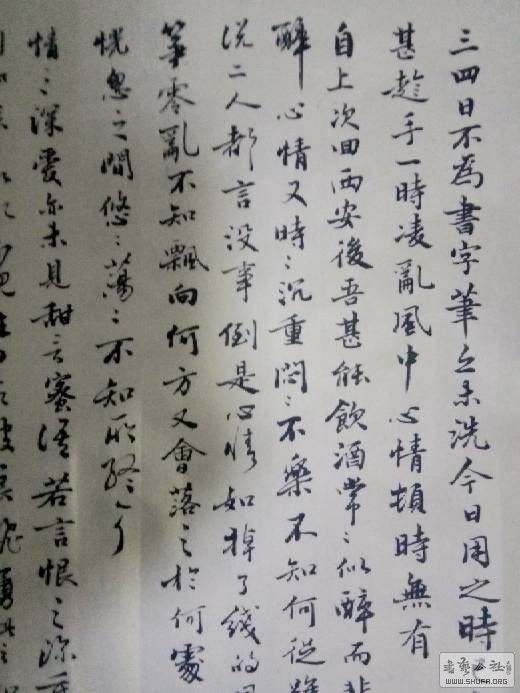 三四日不為書字筆亦未洗今日用之時
甚趁手一時凌亂風中心情頓時無有
自上次回西安後吾甚能飲酒常〻似醉而非
醉心情又時〻沉重悶〻不樂不知何從
说二人都言没事倒是心情如掉了线的風
筝零亂不知飄向何方又會落之於何處
恍忽之間悠〻蕩〻不知所
情之深愛亦未見甜言蜜语若言恨之深
書藝公社
WWW.SHUFA.ORG